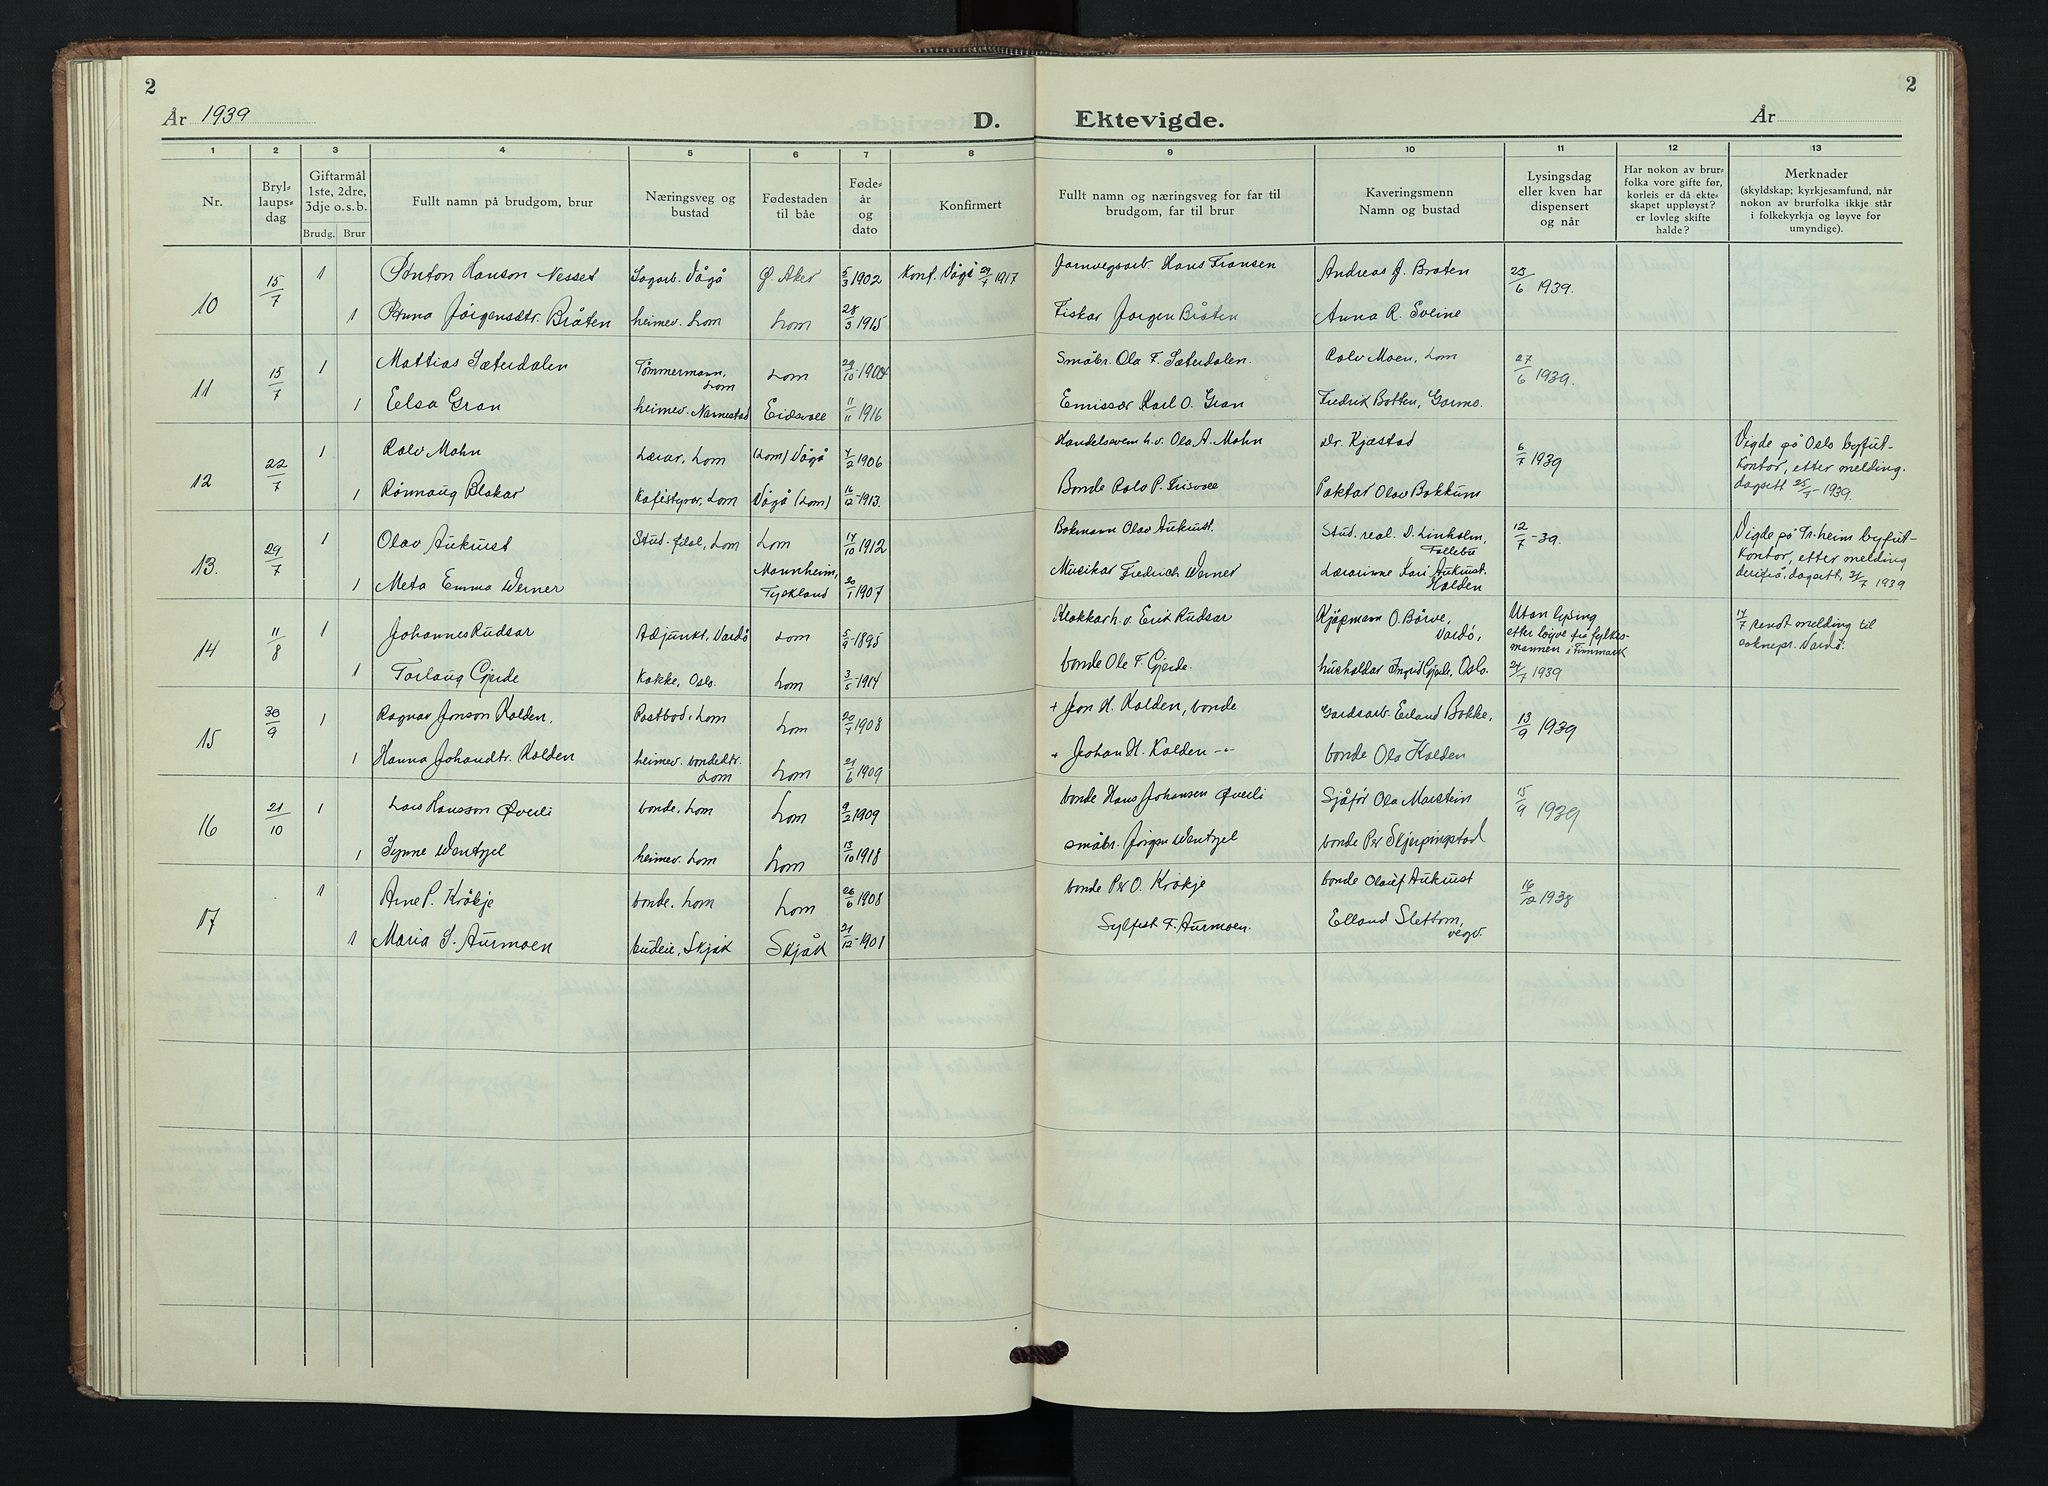 2
År 1939
D.
Ektevigde.
År
2
1 2 3 4 5 6 7 8 9 10 11 12 13
Nr.
Bryl-
laups-
dag
Giftarmål
1ste, 2dre,
3dje o.s.b.
Brudg. Brur
Fullt namn på brudgom, brur
Næringsveg og
bustad
Fødestaden
til båe
Føde-
år
og
dato
Konfirmert
Fullt namn og næringsveg for far til
brudgom, far til brur
Kaveringsmenn
Namn og bustad
Lysingsdag
eller kven har
dispensert
og når
Har nokon av brur-
folka vore gifte før,
korleis er då ekte-
skapet uppløyst?
er lovleg skifte
halde?
Merknader
(skyldskap; kyrkjesamfund, når
nokon av brurfolka ikkje står
i folkekyrkja og løyve for
umyndige).
10 15/7 1 Anton Hanson Nesset Sagarb. Vågå Ø. Aker 5/3 1902 Konf. Vågå 29/7 1917 Jarnvegsarb. Hans Fransen Andreas J. Bråten 23/6 1939.
1 Anna Jørgensdtr. Bråten heimev. Lom Lom 28/3 1915 Fiskar Jørgen Bråten Anna R. Sveine
11 15/7 1 Mattias Sæterdalen Tømmermann, Lom Lom 29/10 1904 Småbr. Ola F. Sæterdalen. Rolv Moen, Lom 27/6 1939.
1 Eelsa Gran heimev. Nannestad Eidsvoll 11/11 1916 Emissær Karl O. Gran Fredrik Botten, Garmo.
12 22/7 1 Rolv Mohn Lærar, Lom (Lom) Vågå 4/2 1906 Handelsvem h.v. Ola A. Mohn dr. Kjæstad 6/7 1939 Vigde på Oslo byfut-
kontor, etter melding.
dagsett 25/7 - 1939.
1 Rønnaug Blakar Kafestyrar, Lom Vågå (Lom) 16/12 - 1913. Bonde Rolv P. Frisvoll Paktar Olav Bakkum
13. 29/7 1 Olav Aukrust Stud. filol, Lom Lom 14/10 1912 Bokmann Olav Aukrust. Stud. real. D. Linholm,
Follebu 12/7 - 39. Vigde på Tr.heim byfut-
kontor, etter melding
derifrå, dagsett, 31/7 1939
1 Meta Emma Werner Mannheim,
Tyskland 20/1 1907 Musikar Fredrich Werner Lærarinne Kari Aukrust.
Halden
14 11/8 1 Johannes Rudsar Adjunkt, Vardø Lom 5/9 - 1895 Klokkar h.v. Erik Rudsar Kjøpmann O. Børve,
Vardø, Utan lysing
etter løyve frå fylkes-
mannen i Finnmark
24/7 1939 14/7 sendt melding til
soknepr. Vardø.
1 Torlaug Gjerde Kokke, Oslo. Lom 3/5 - 1914 bonde Ole F. Gjerde. hushaldar Ingrid Gjerde, Oslo.
15 30/9 1 Ragnar Jonson Kolden. Postbod, Lom Lom 20/7 1908 + Jon H. Kolden, bonde Gardsarb. Erland Bakke, 13/9 1939
1 Hanna Johandtr. Kolden heimev. bondedtr.
Lom Lom 21/6 1909 + Johan H. Kolden -"- bonde Ola Kolden
16 21/10 1 Lars Hansson Øverli bonde, Lom Lom 9/2 1909 bonde Hans Johansen Øverli Sjåfør Ola Marstein 15/9 1939
1 Synne Wentzel heimev. Lom Lom 13/10 1918 småbr. Jørgen Wentzel bonde Per Skjerpingstad
17 1 Arne P. Kråkje bonde, Lom Lom 26/6 1908 bonde Per O. Kråkje bonde Olauf Aukrust 16/12 1938
1 Maria S. Aurmoen budeie, Skjåk Skjåk 21/12 - 1901 Sylfest F. Aurmoen. Erland Slettom,
vegv.